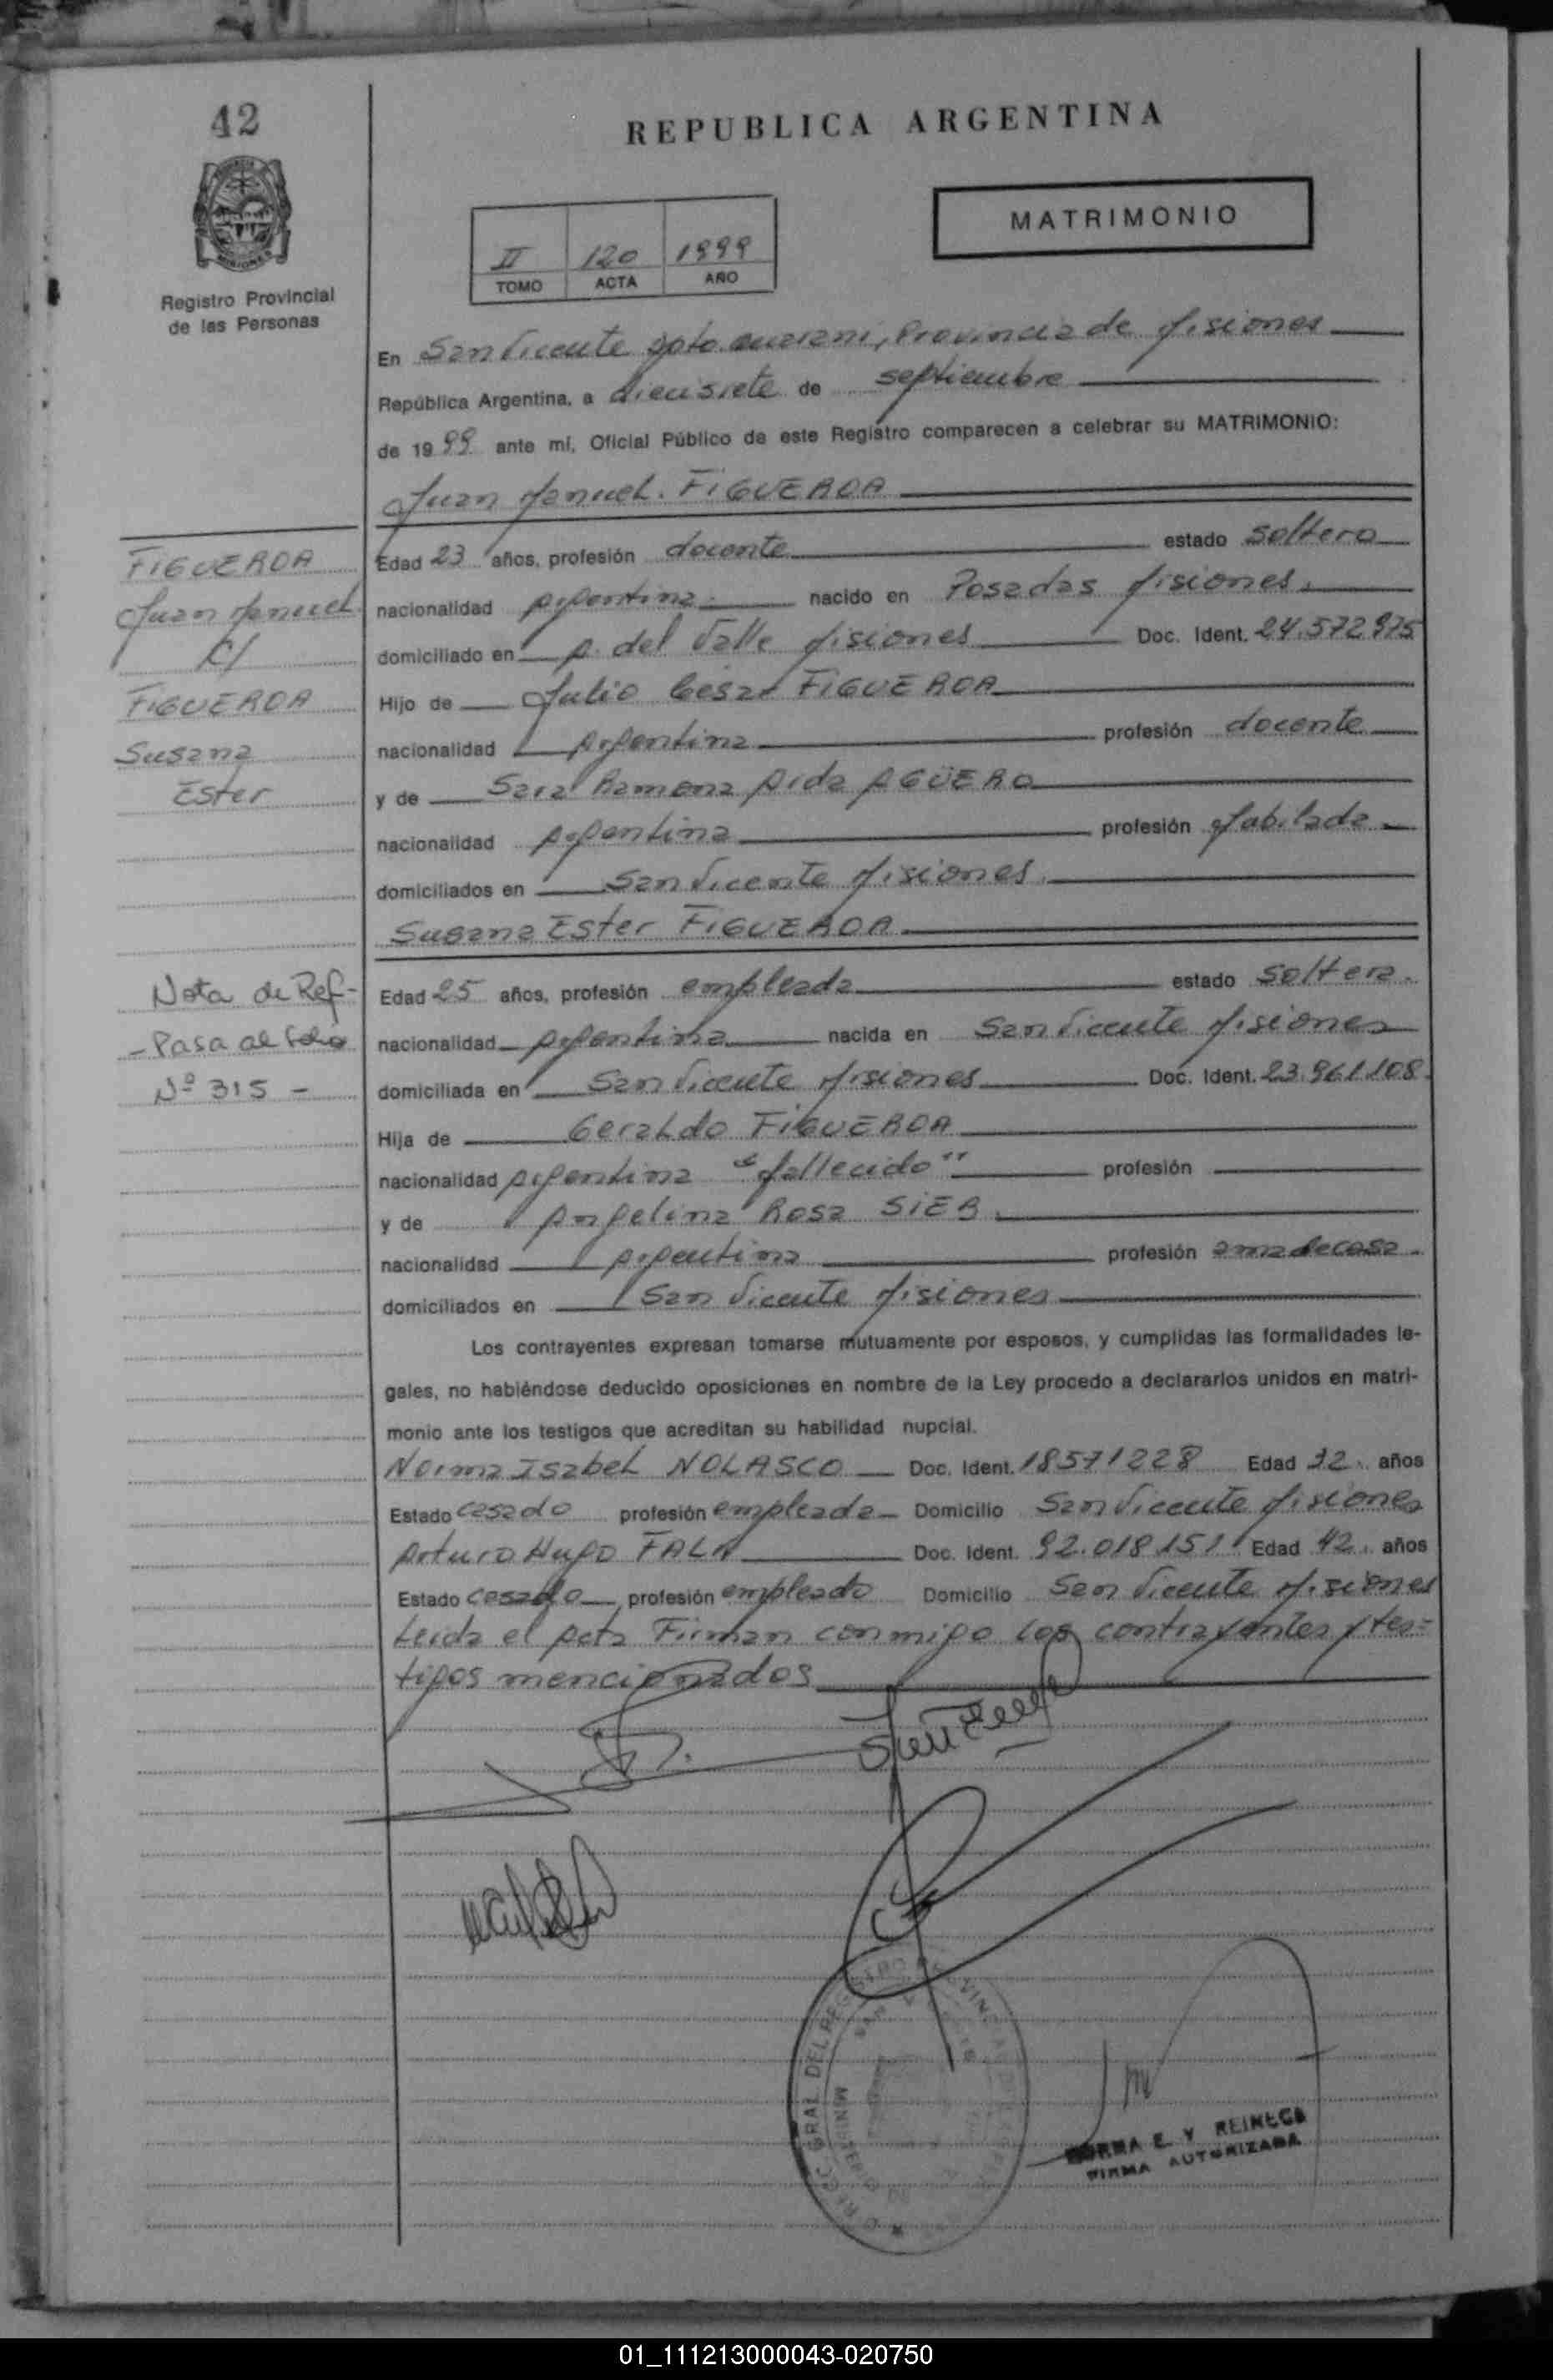 42
REPUBLICA ARGENTINA
MATRIMONIO
II 120 1999
TOMO ACTA AÑO
Registro Provincial
de las Personas
En San Vicente Dpto. Guarani, Provincia de Misiones
República Argentina, a diecisiete de septiembre
de 1999 ante mí, Oficial Público de este Registro comparecen a celebrar su MATRIMONIO:
Juan Manuel. FIGUEROA
FIGUEROA
Juan Manuel
C/
FIGUEROA
Susana
Ester
Edad 23 años, profesión docente estado soltero
nacionalidad Argentina nacido en Posadas Misiones.
domiciliado en A. del Valle Misiones Doc. Ident. 24.572.975
Hijo de Julio Cesar FIGUEROA
nacionalidad Argentina profesión docente
y de Sara Ramona Aida AGÜERO
nacionalidad Argentina profesión Jubilada
domiciliados en San Vicente Misiones.
Susana Ester FIGUEROA
Nota de Ref-
-Pasa al folio
Nº 315 -
Edad 25 años, profesión empleada estado soltera.
nacionalidad Argentina nacida en San Vicente Misiones
domiciliada en San Vicente Misiones Doc. Ident. 23.961.108.
Hija de Geraldo FIGUEROA
nacionalidad Argentina "fallecido" profesión
y de Angelina Rosa SIEB.
nacionalidad Argentina profesión ama de casa.
domiciliados en San Vicente Misiones
Los contrayentes expresan tomarse mutuamente por esposos, y cumplidas las formalidades le-
gales, no habiéndose deducido oposiciones en nombre de la Ley procedo a declararlos unidos en matri-
monio ante los testigos que acreditan su habilidad nupcial.
Norma Isabel NOLASCO Doc. Ident. 18571228 Edad 32. años
Estado casado profesión empleada Domicilio San Vicente Misiones
Arturo Hugo FALK Doc. Ident. 92.018.151 Edad 42. años
Estado casado profesión empleado Domicilio San Vicente Misiones
Leida el Acta Firman conmigo los contrayentes y tes=
tigos mencionados
DIRECC. GRAL. DEL REGISTRO PROVINCIAL
MINISTERIO
NORMA E. V. REINECA
FIRMA AUTORIZADA
01_111213000043-020750